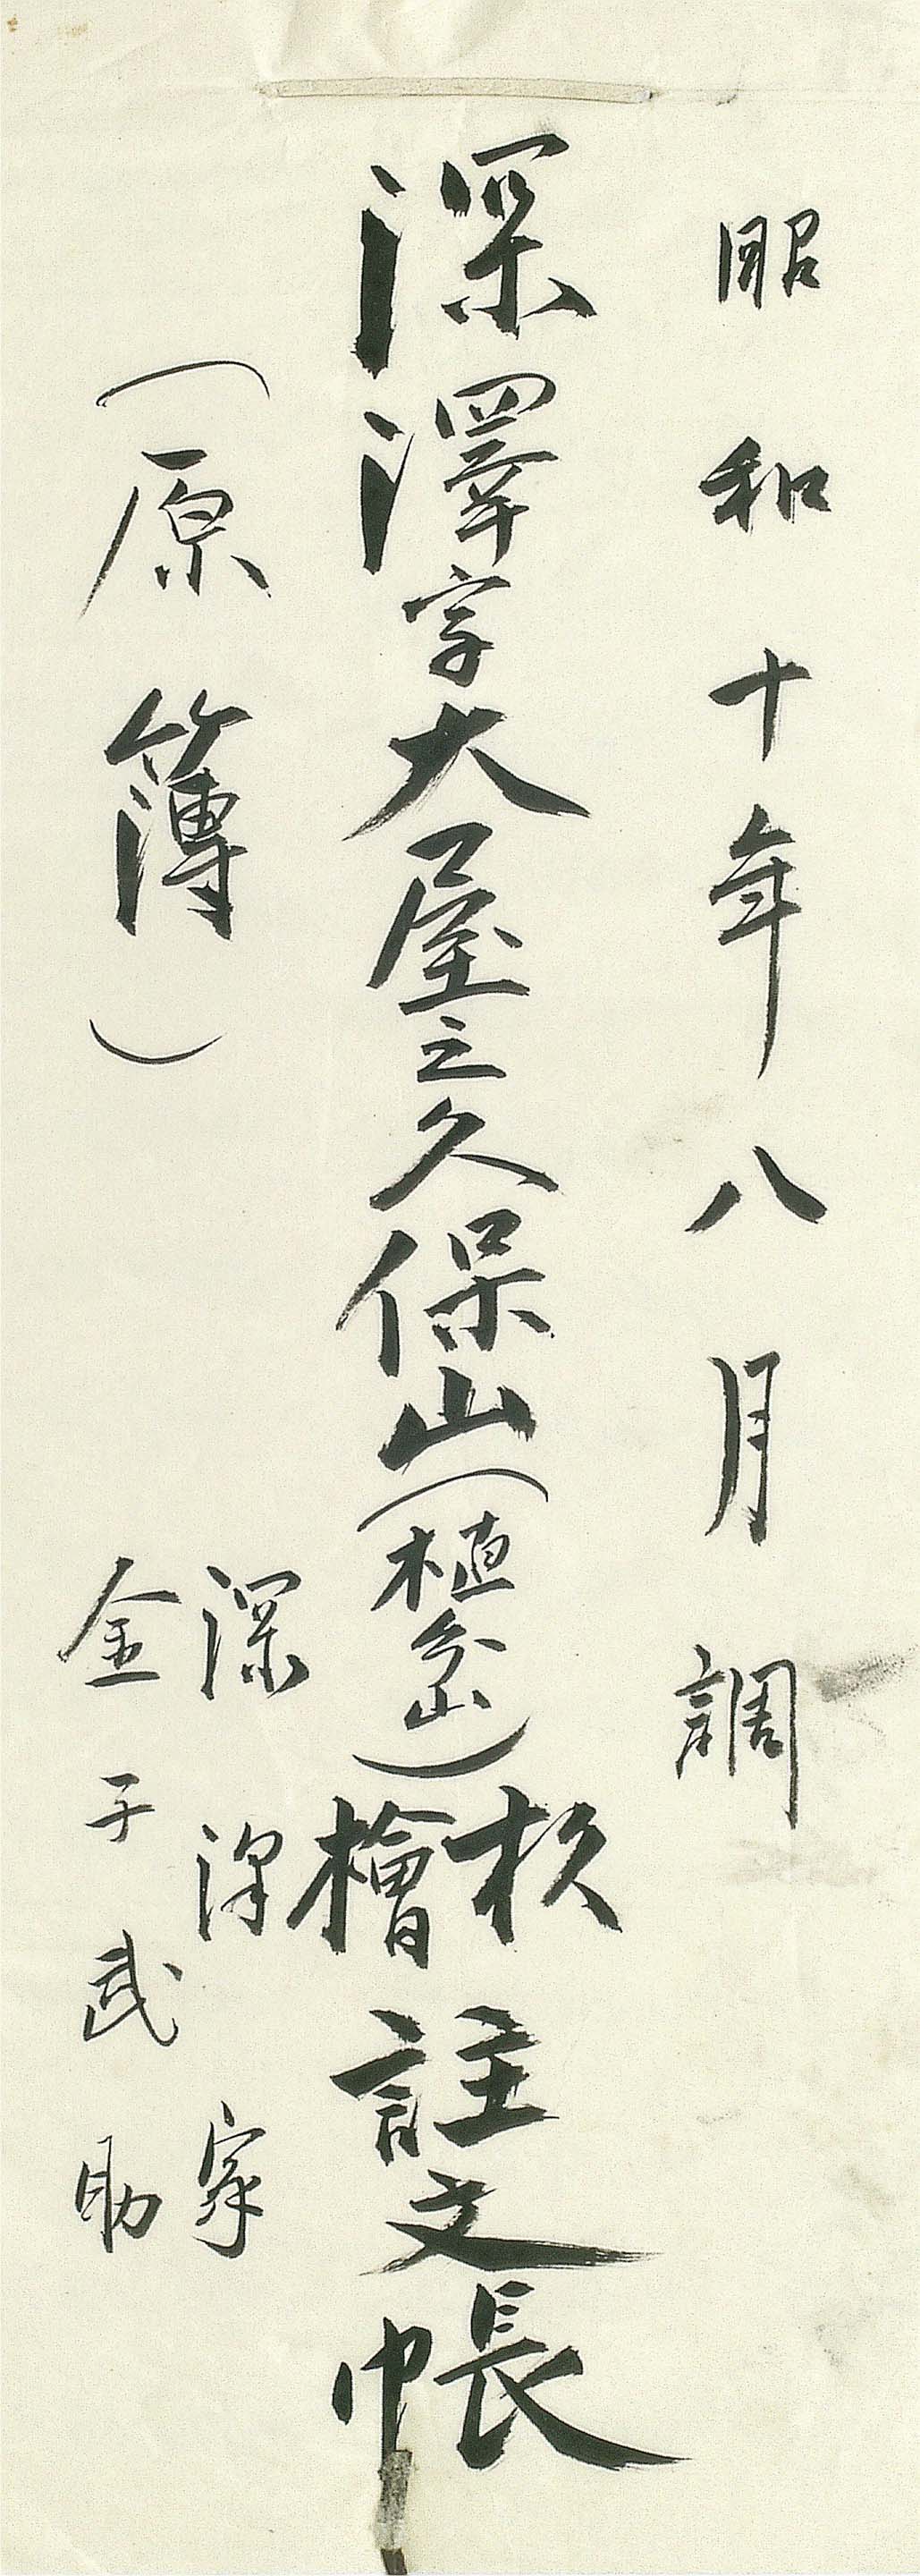 昭和十年八月調
深澤字大屋之久保山(植分山)杉檜註文帳
(原簿)
深澤家
金子武助